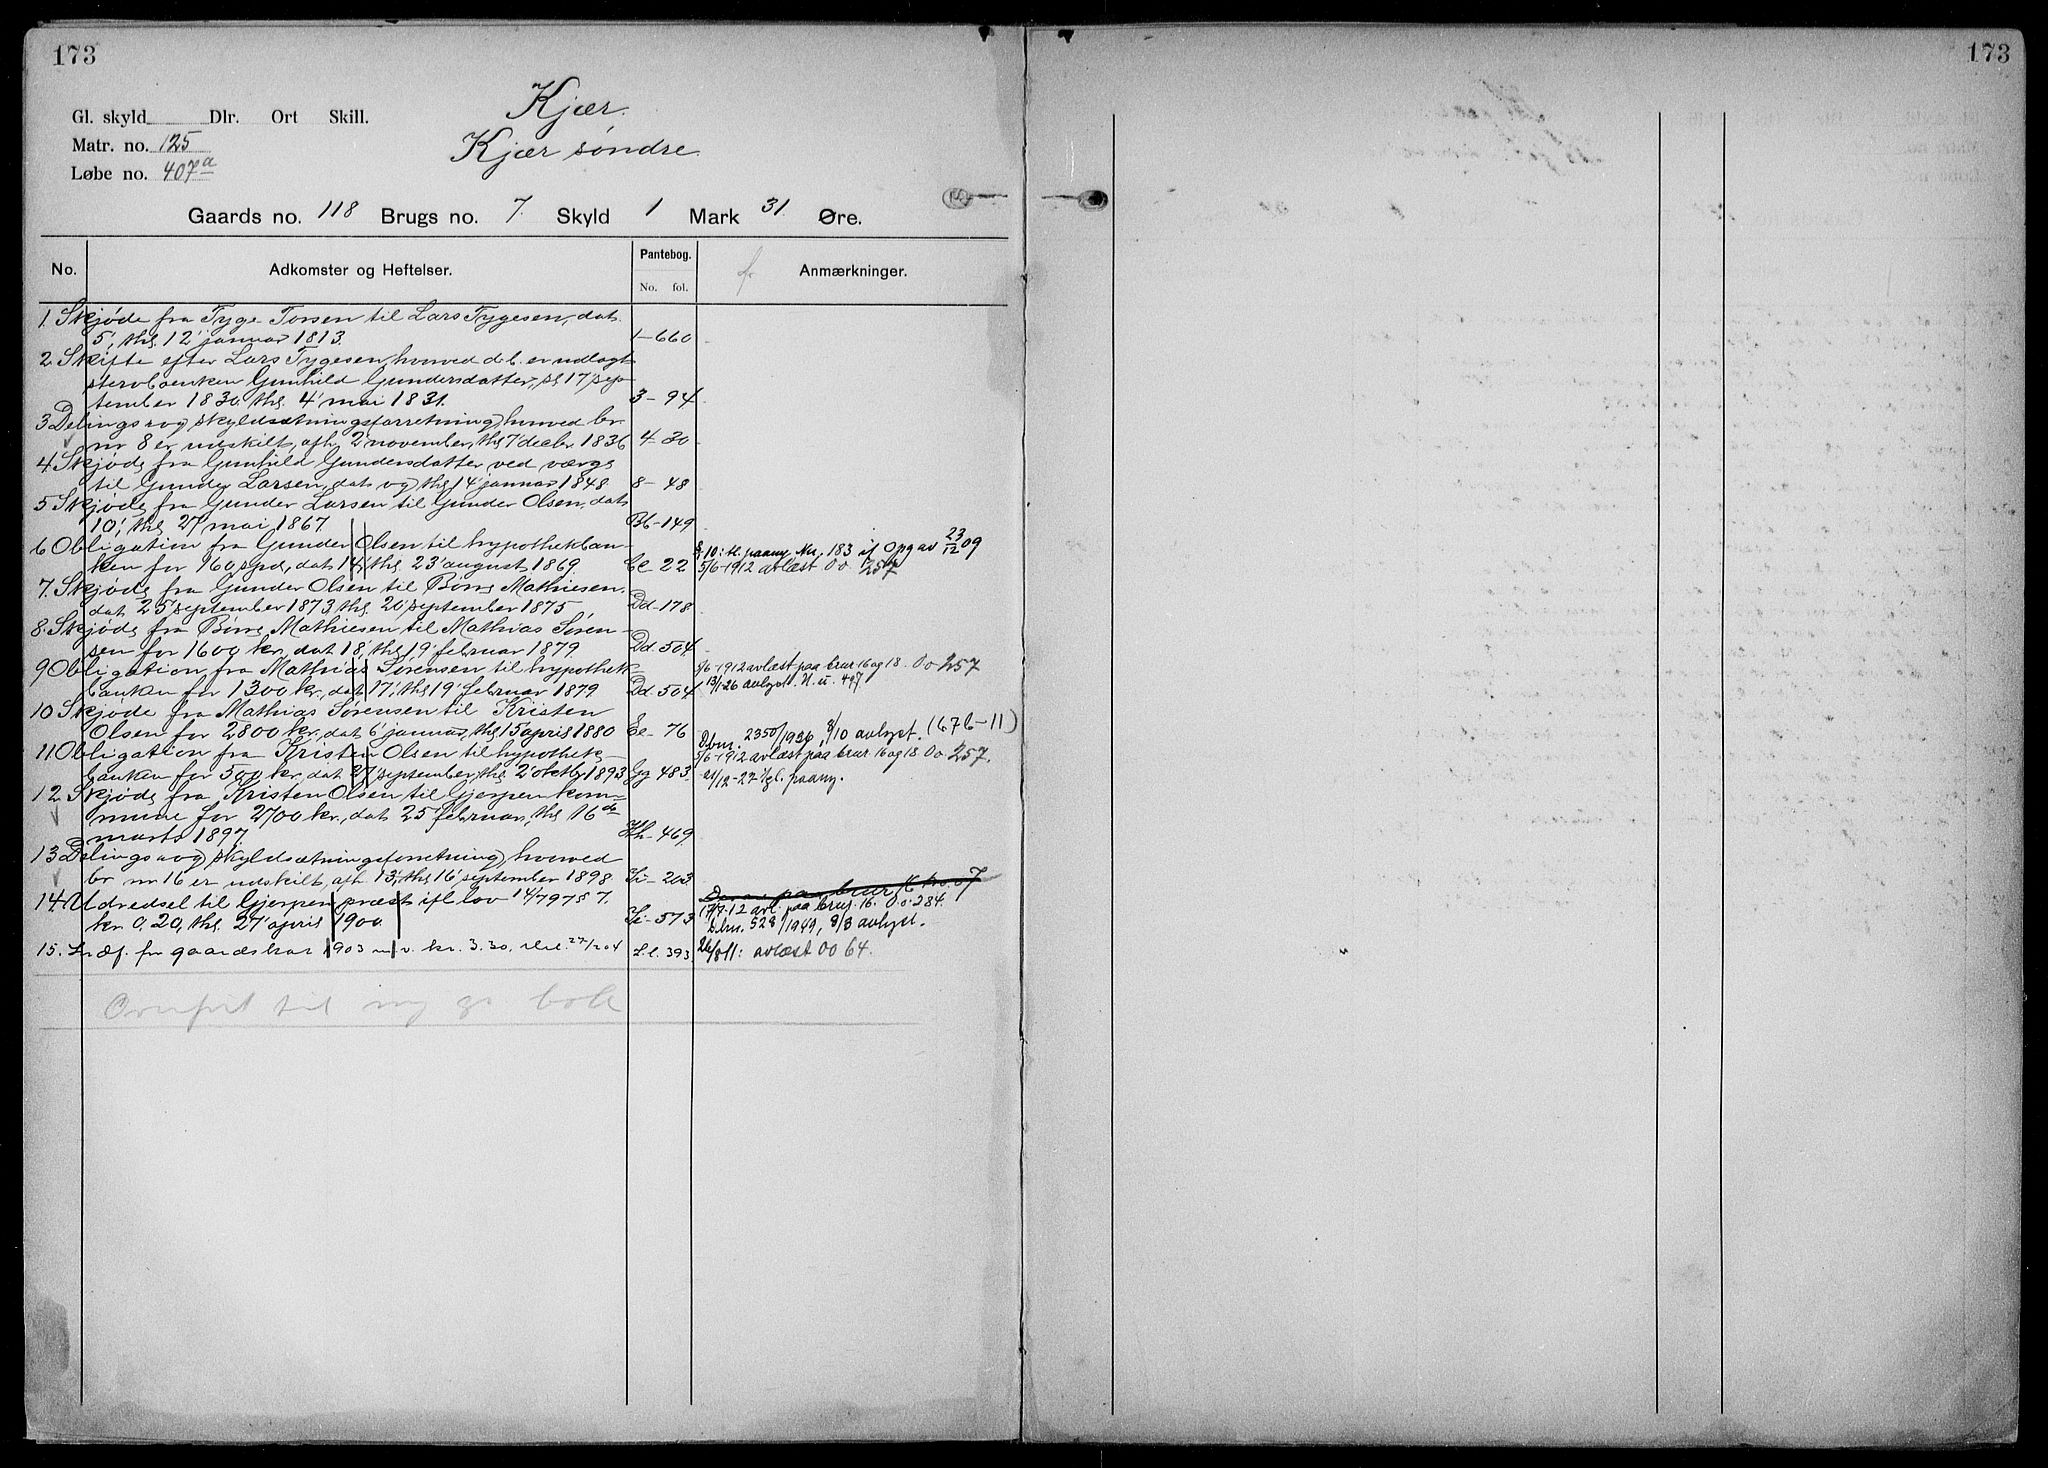 173
173
Gl. skyld Dlr. Ort Skill.
Kjær.
Matr. no. 125
Kjær søndre.
Løbe no. 407a
Gaards no. 118 Brugs no. 7. Skyld 1 Mark 31. Øre.
No. Adkomster og Heftelser. Pantebog. No. fol. Anmærkninger.
1. Skjøde fra Tyge Torsen til Lars Tygesen, dat.
5', thl. 12' januar 1813. 1-660
2. Skifte efter Lars Tygesen, hvorved d.b. er udlagt
stervboenken Gunhild Gundersdatter, sl. 17' sep-
tember 1830. thl. 4' mai 1831. 3-94
3 Delings- og skyldsætningsforretning, hvorved br
nr 8 er udskilt, afh. 2' november, thl. 7' decbr. 1836 4-30
4 Skjøde fra Gunhild Gundersdatter ved værge
til Gunder Larsen, dat. og thl. 14' januar 1848 8-48
5 Skjøde fra Gunder Larsen til Gunder Olsen, dat.
10', thl. 27' mai 1867. Bb-149
6 Obligation fra Gunder Olsen til hypothekban-
ken for 160 spd., dat. 14', thl. 23' august 1869. Cc-22
10: tl. paany Nn. 183 if Opg av 23/12 09
5/6-1912 avlæst Oo 257
7. Skjøde fra Gunder Olsen til Børre Mathiesen.
dat. 25' september 1873, thl. 20' september 1875 Dd-178
8. Skjøde fra Børre Mathiesen til Mathias Søren-
sen for 1600 kr., dat 18', thl. 19' februar 1879. Dd-504.
9 Obligation fra Mathias Sørensen til hypothek-
banken for 1300 kr., dat. 17', thl. 19' februar 1879. Dd. 504
5/6-1912 avlæst paa brnr 16 og 18. Oo 257
13/1-26 avlyst. N. u. 497.
10 Skjøde fra Mathias Sørensen til Kristen
Olsen for 2800 kr., dat. 6' januar, thl. 15' april 1880 Ee-76
11 Obligation fra Kristen Olsen til hypothek-
banken for 500 kr., dat. 27' september, thl. 2' oktbr. 1893 Gg 483.
Dbnr. 2350/1936, 8/10 avlyst. (67b-11)
5/6-1912 avlæst paa brnr 16 og 18. Oo 257.
21/12-22 tgl. paany.
12 Skjøde fra Kristen Olsen til Gjerpen kom-
mune for 2700 kr., dat. 25' februar, thl. 16de
marts 1897. Hh-469
13 Delings- og skyldsætningsforretning, hvorved
br nr 16 er udskilt, afh. 13', thl. 16' september 1898. Ii-203
14. Udredsel til Gjerpen præst ifl lov 14/7 97 § 7.
kr. 0,20, thl. 27' april 1900 Ii-573
17/9. 12 avl. paa brnr. 16. Oo. 284.
Dbnr. 528/1949, 8/3 avlyst.
15. for gaardskar 1903 kr. 3.30, 27/2 04 L.l. 393.
26/8 11: avlæst Oo 64.
Overført til ny gr bok